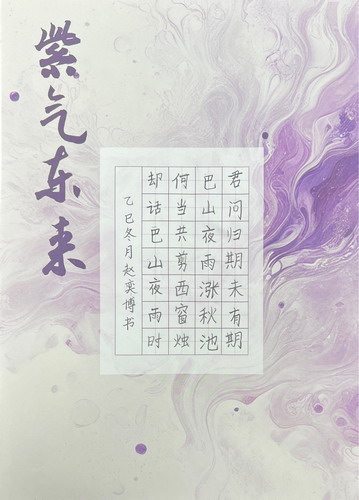 紫气东来
君问归期未有期
巴山夜雨涨秋池
何当共剪西窗烛
却话巴山夜雨时
乙巳冬月赵奕博书